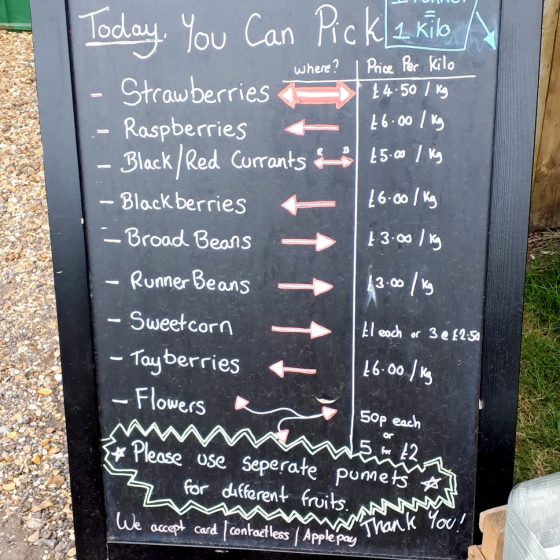 Today. You Can Pick
1 Punnet
=
1 Kilo
where? Price Per Kilo
- Strawberries £4.50 / Kg
- Raspberries £6.00 / Kg
- Black/Red Currants R B £5.00 / Kg
- Blackberries £6.00 / Kg
- Broad Beans £3.00 / Kg
- Runner Beans £3.00 / Kg
- Sweetcorn £1 each or 3 @ £2.50
- Tayberries £6.00 / Kg
- Flowers 50p each
or
5 for £2
Please use seperate punnets
for different fruits.
Thank You!
We accept card / contactless / Applepay